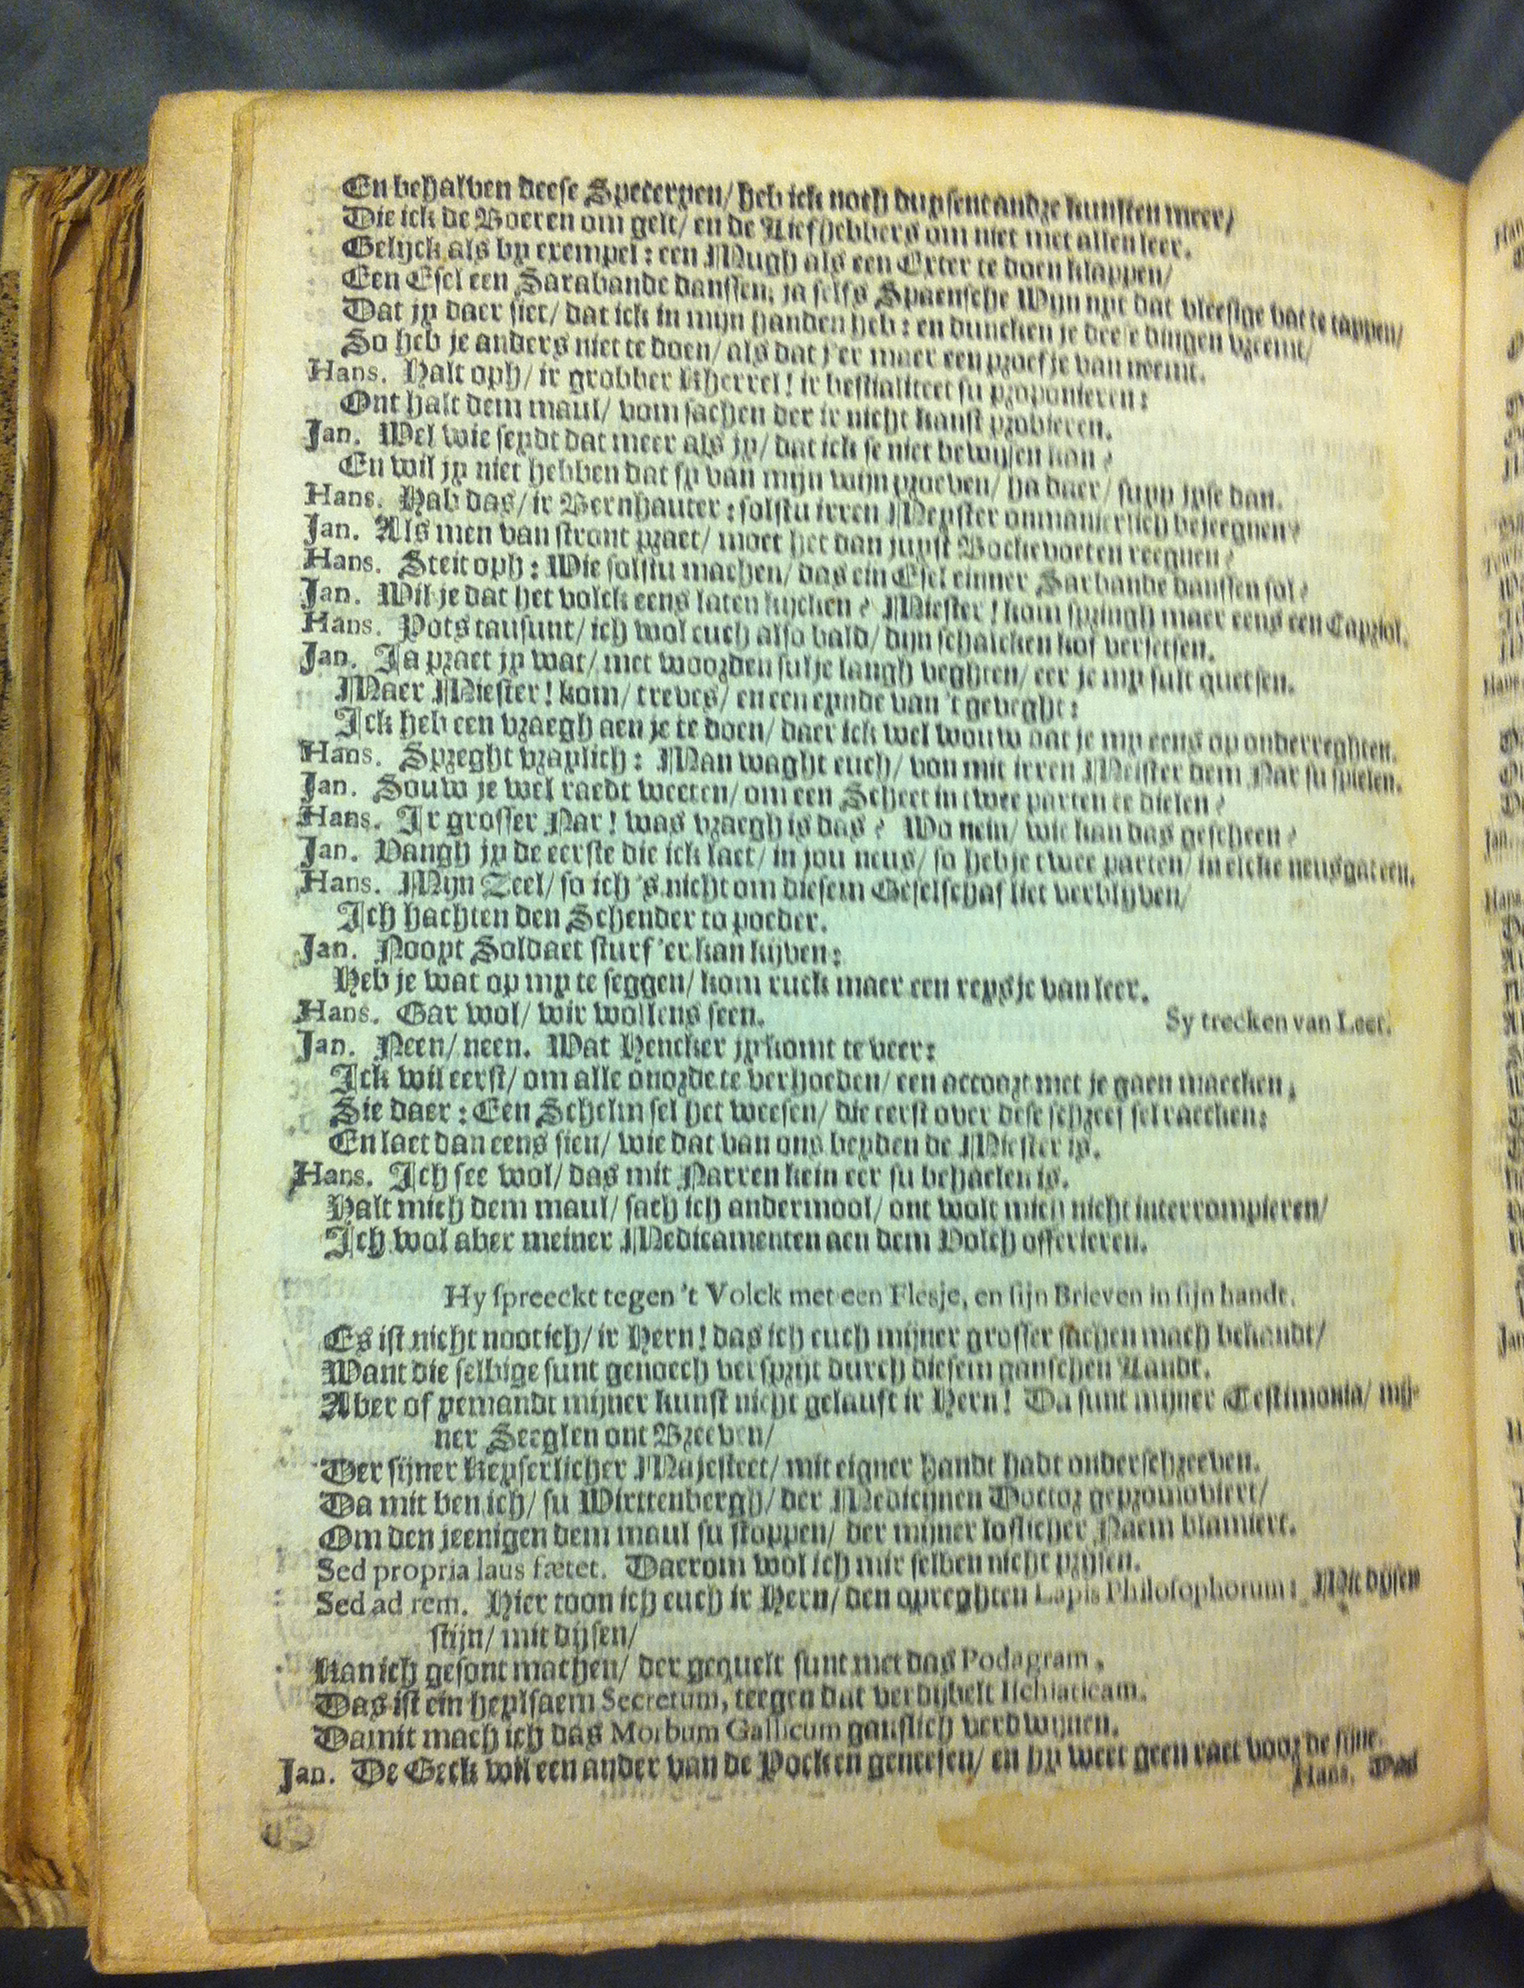 En behalven deese Speceryen/ heb ick noch duysent andre kunsten meer/
Die ick de Boeren om gelt/ en de Liefhebbers om niet met allen leer.
Gelijck als by exempel: een Mugh als een Exter te doen klappen/
Een Esel een Sarabande danssen, ja selfs Spaensche Wijn uyt dat vleesige vat te tappen/
Dat jy daer siet/ dat ick in mijn handen heb: en duncken je deese dingen vreemt/
So heb je anders niet te doen/ als dat j'er maer een proefje van neemt.
Hans. Halt oph/ ir grobber Kherrel! ir bestialiteet su proponieren:
Ont halt dem maul/ vom sachen der ir nicht kanst probieren.
Jan. Wel wie seydt dat meer als jy/ dat ick se niet bewijsen kan?
En wil jy niet hebben dat sy van mijn wijn proeven/ ha daer/ supp ipse dan.
Hans. Hab das/ ir Bernhauter: solstu ieren Meyster onmanierlich bejeegnen?
Jan. Als men van stront praet/ moet het dan juyst Bockevoeten reegnen?
Hans. Steit oph: Wie solstu machen/ das ein Esel einner Sarbande danssen sol?
Jan. Wil je dat het volck eens laten kijcken? Miester! kom springh maer eens een Capriol.
Hans. Pots tausunt/ ich wol euch also bald/ dijn schalcken kof versetsen.
Jan. Ja praet jy wat/ met woorden sulje langh veghten/ eer je my sult quetsen.
Maer Miester! kom/ treves/ en een eynde van 't geveght:
Ick heb een vraegh aen je te doen/ daer ick wel wouw dat je my eens op onderreghten.
Hans. Spreght vraylich: Man waght euch/ von mit ieren Meister dem Nar su spielen.
Jan. Souw je wel raedt weeten/ om een Scheet in twee parten te dielen?
Hans. Ir grosser Nar! was vraegh is das? Wo nein/ wie kan das gescheen?
Jan. Vangh jy de eerste die ick laet/ in jou neus/ so heb je twee parten/ in elcke neusgat een.
Hans. Mijn Zeel/ so ich 's nicht om diesem Geselschaf liet verblijven/
Ich hachten den Schender to poeder.
Jan. Nooyt Soldaet sturf 'er kan kijven:
Heb je wat op my te seggen/ kom ruck maer een reysje van leer.
Hans. Gar wol/ wir wollens seen.
Sy trecken van Leer.
Jan. Neen/ neen. Wat Hencker jy komt te veer:
Ick wil eerst/ om alle onorde te verhoeden/ een accoort met je gaen maecken,
Sie daer: Een Schelm sel het weesen/ die eerst over dese schreef sel raecken:
En laet dan eens sien/ wie dat van ons beyden de Miester is.
Hans. Ich see wol/ das mit Narren kein eer su behaelen is.
Halt mich dem maul/ sach ich andermool/ ont wolt mich nicht interrompieren/
Ich wol aber meiner Medicamenten aen dem Volch offerieren.
Hy spreeckt tegen 't Volck met een Flesje, en sijn Brieven in sijn handt.
Es ist nicht nootich/ ir Hern! das ich euch mijner grosser sachen mach bekandt/
Want die selbige sunt genoech verspryt durch diesem ganschen Landt.
Aber of yemandt mijner kunst nicht gelauft ir Hern! Da sunt mijner Testimonia/ mij-
ner Seeglen ont Breeven/
Der sijner Keyserlicher Majesteet/ mit eigner handt hadt onderschreeven.
Da mit ben ich/ su Wirttenbergh/ der Medicijnen Doctor gepromoviert/
Om den jeenigen dem maul su stoppen/ der mijner loflicher Naem blamiert.
Sed propria laus fætet. Daerom wol ich mir selben nicht prijsen.
Sed ad rem. Hier toon ich euch ir Hern/ den opreghten Lapis Philosophorum: Mit dijsen
stijn/ mit dijsen/
Kan ich gesont machen/ der gequelt sunt met das Podagram,
Das ist ein heylsaem Secretum, teegen dat verdijbelt Ischiaticam.
Damit mach ich das Morbum Gallicum ganslich verdwijnen.
Jan. De Geck wil een ander van de Pocken geneesen/ en hy weet geen raet voor de sijne.
Hans. Das